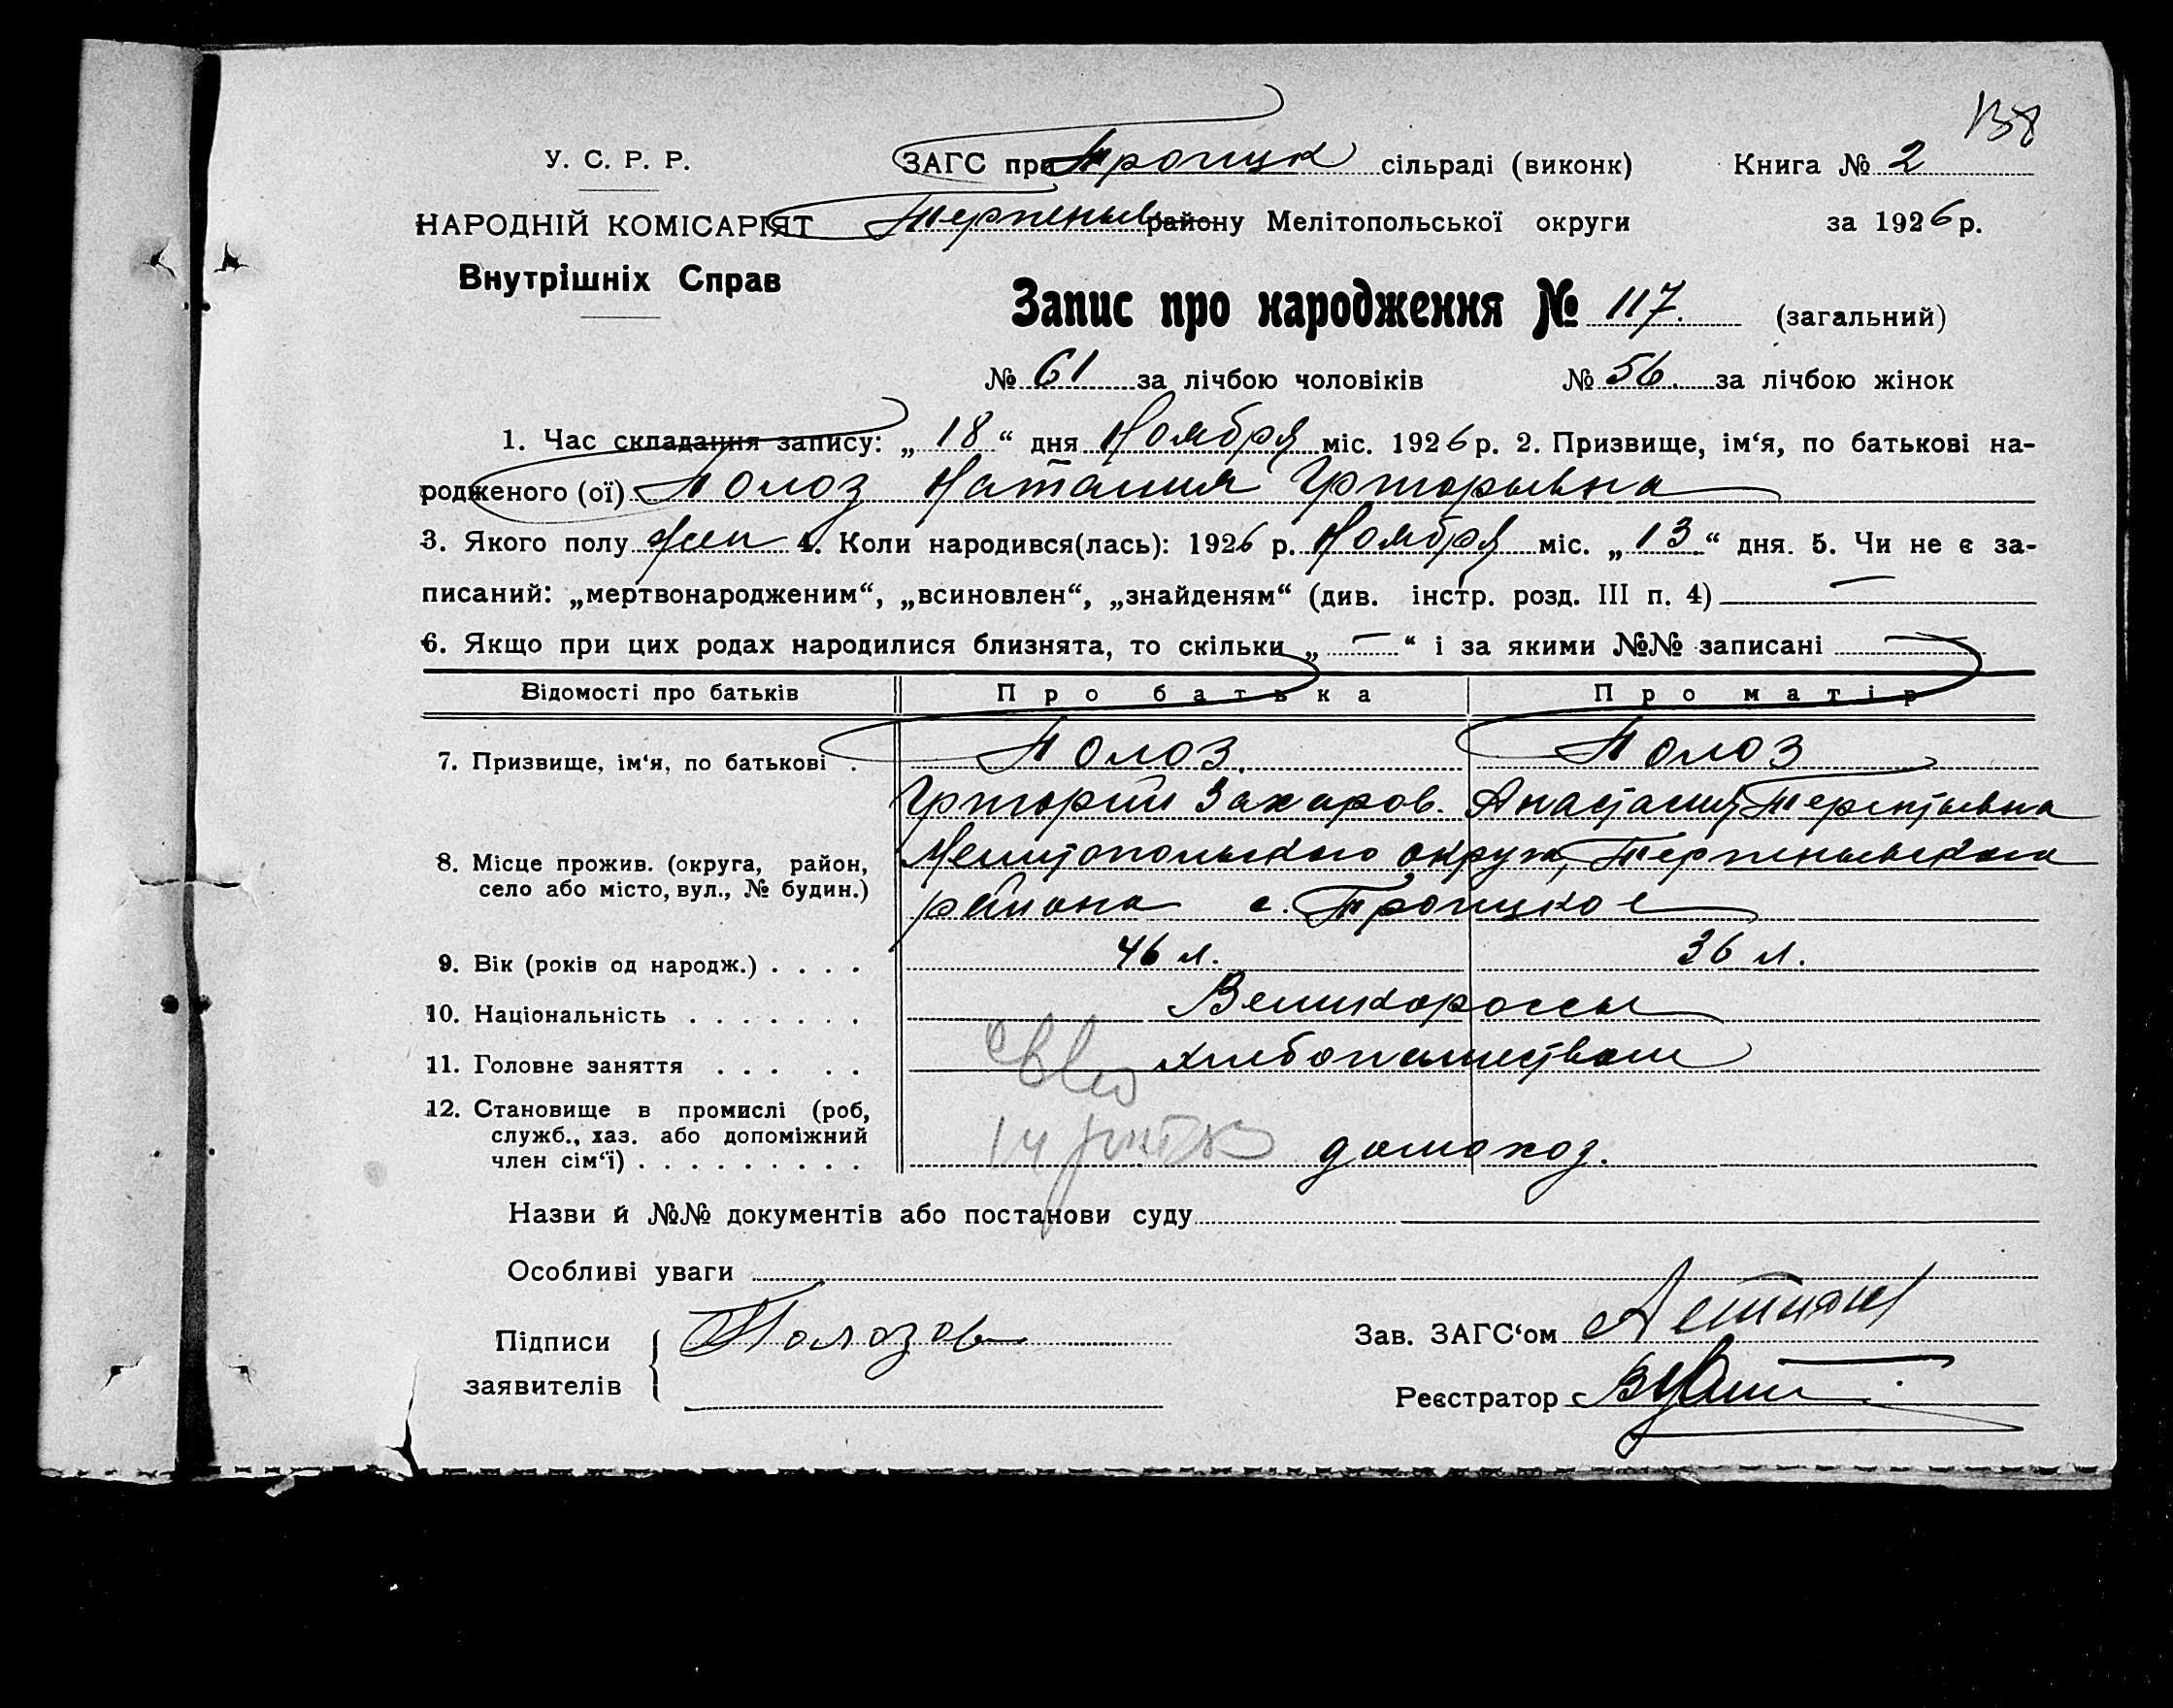 138
У. С. Р. Р. ЗАГС при Троицк сільраді (виконк) Книга № 2
НАРОДНІЙ КОМІСАРІЯТ Терпеньев району Мелітопольської округи за 1926 р.
Внутрішніх Справ
Запис про народження № 117. (загальний)
№ 61 за лічбою чоловіків № 56. за лічбою жінок
1. Час складання запису: „18“ дня Ноября міс. 1926 р. 2. Призвище, ім‘я, по батькові на-
родженого (ої) Полоз Наталия Григорьевна
3. Якого полу жен 4. Коли народився(лась): 1926 р. Ноября міс. „13“ дня. 5. Чи не є за-
писаний: „мертвонародженим“, „всиновлен“, „знайденям“ (див. інстр. розд. III п. 4) —
6. Якщо при цих родах народилися близнята, то скільки „—“ і за якими №№ записані —
Відомості про батьків Про батька Про матір
7. Призвище, ім‘я, по батькові . Полоз. Полоз
Григорий Захаров. Анастасия Терентьевна
8. Місце прожив. (округа, район, Мелитопольского округа, Терпеньевского
село або місто, вул., № будин.) района с. Троицкое
9. Вік (років од народж.) . . . . 46 л. 36 л.
10. Національність . . . . . . . Великороссы
11. Головне заняття . . . . . хлебопашеством
12. Становище в промислі (роб,
служб., хаз. або допоміжний
член сім‘ї) . . . . . . . . . домохоз.
Назви й №№ документів або постанови суду
Особливі уваги
Підписи Полозов Зав. ЗАГС‘ом
заявителів Реєстратор